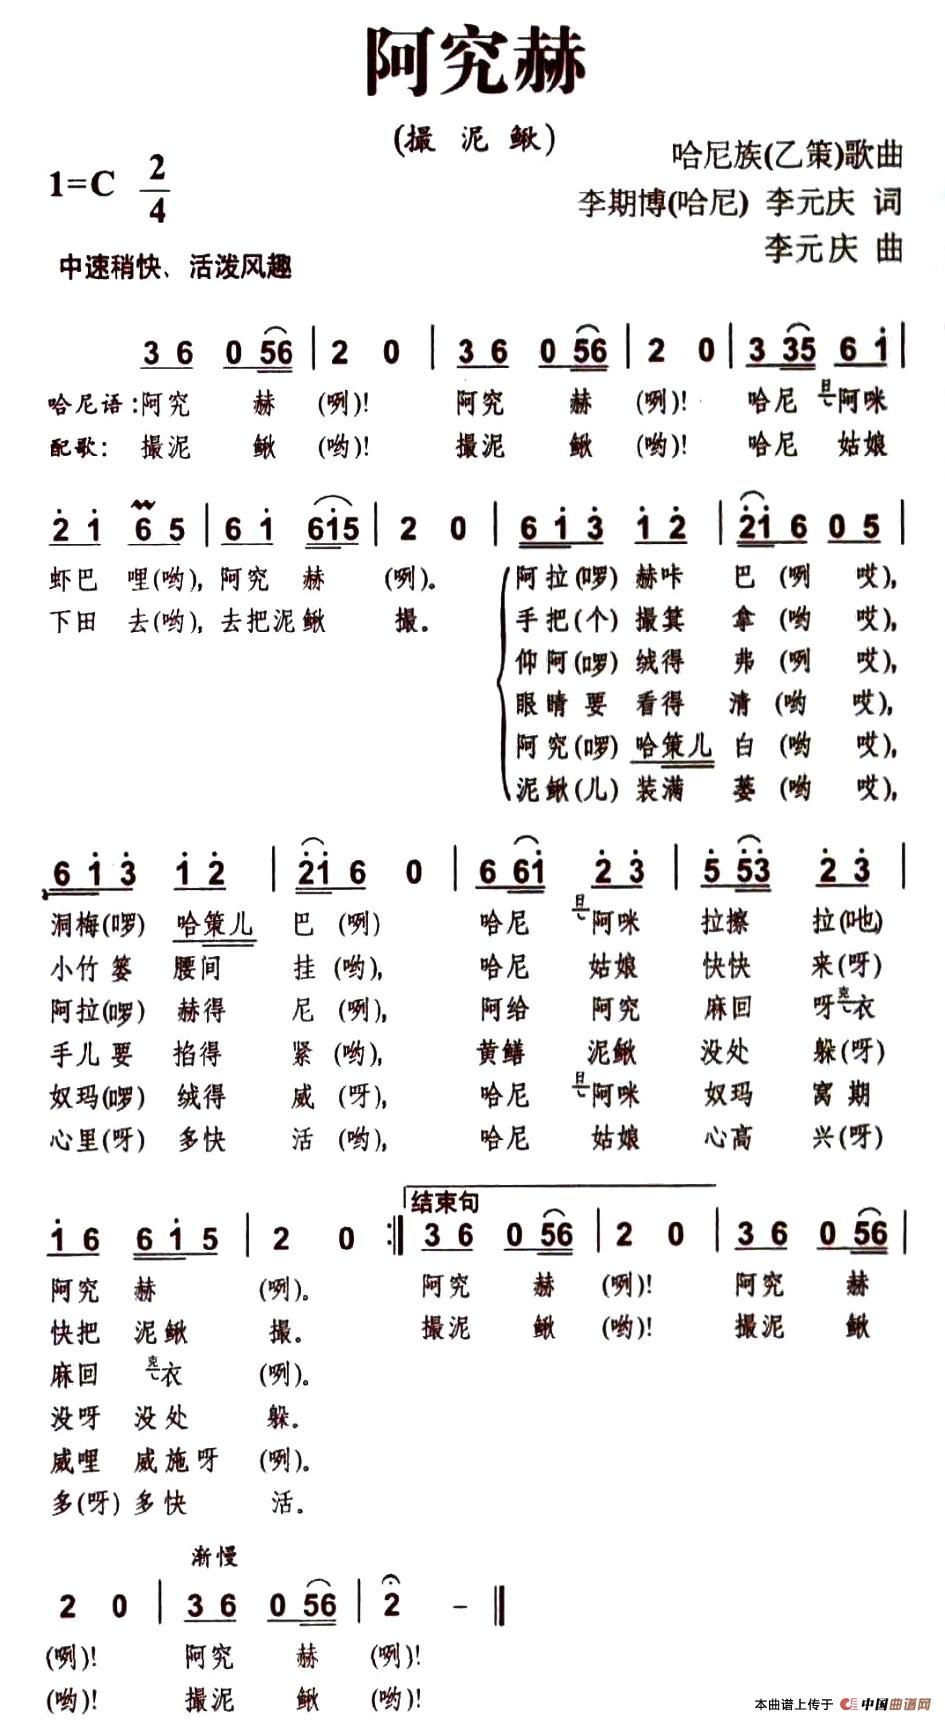 阿究赫
(撮 泥 鳅)
哈尼族(乙策)歌曲
1=C 2/4
李期博(哈尼) 李元庆 词
李元庆 曲
中速稍快、活泼风趣
3 6 0 56 | 2 0 | 3 6 0 56 | 2 0 | 3 35 6 i |
哈尼语:阿究 赫 (咧)! 阿究 赫 (咧)! 哈尼 阿咪
配歌: 撮泥 鳅 (哟)! 撮泥 鳅 (哟)! 哈尼 姑娘
2 i 6 5 | 6 i 6i5 | 2 0 | 6 i 3 i 2 | 2i 6 0 5 |
虾巴 哩(哟), 阿究 赫 (咧)。 阿拉(啰) 赫咔 巴 (咧 哎),
下田 去(哟), 去把泥鳅 撮。 手把(个) 撮箕 拿 (哟 哎),
仰阿(啰) 绒得 弗 (咧 哎),
眼睛 要 看得 清 (哟 哎),
阿究(啰) 哈策儿 白 (哟 哎),
泥鳅(儿) 装满 蒌 (哟 哎),
6 i 3 i 2 | 2i 6 0 | 6 6i 2 3 | 5 53 2 3 |
洞梅(啰) 哈策儿 巴 (咧) 哈尼 阿咪 拉擦 拉(吔)
小竹 篓 腰间 挂 (哟), 哈尼 姑娘 快快 来(呀)
阿拉(啰) 赫得 尼 (咧), 阿给 阿究 麻回 呀 衣
手儿 要 掐得 紧 (哟), 黄鳝 泥鳅 没处 躲(呀)
奴玛(啰) 绒得 威 (呀), 哈尼 阿咪 奴玛 窝 期
心里(呀) 多快 活 (哟), 哈尼 姑娘 心高 兴(呀)
结束句
i 6 6 i 5 | 2 0 :‖ 3 6 0 56 | 2 0 | 3 6 0 56 |
阿究 赫 (咧)。 阿究 赫 (咧)! 阿究 赫
快把 泥鳅 撮。 撮泥 鳅 (哟)! 撮泥 鳅
麻回 衣 (咧)。
没呀 没处 躲。
威哩 威施呀 (咧)。
多(呀) 多快 活。
渐慢
2 0 | 3 6 0 56 | 2 – ‖
(咧)! 阿究 赫 (咧)!
(哟)! 撮泥 鳅 (哟)!
本曲谱上传于 中国曲谱网